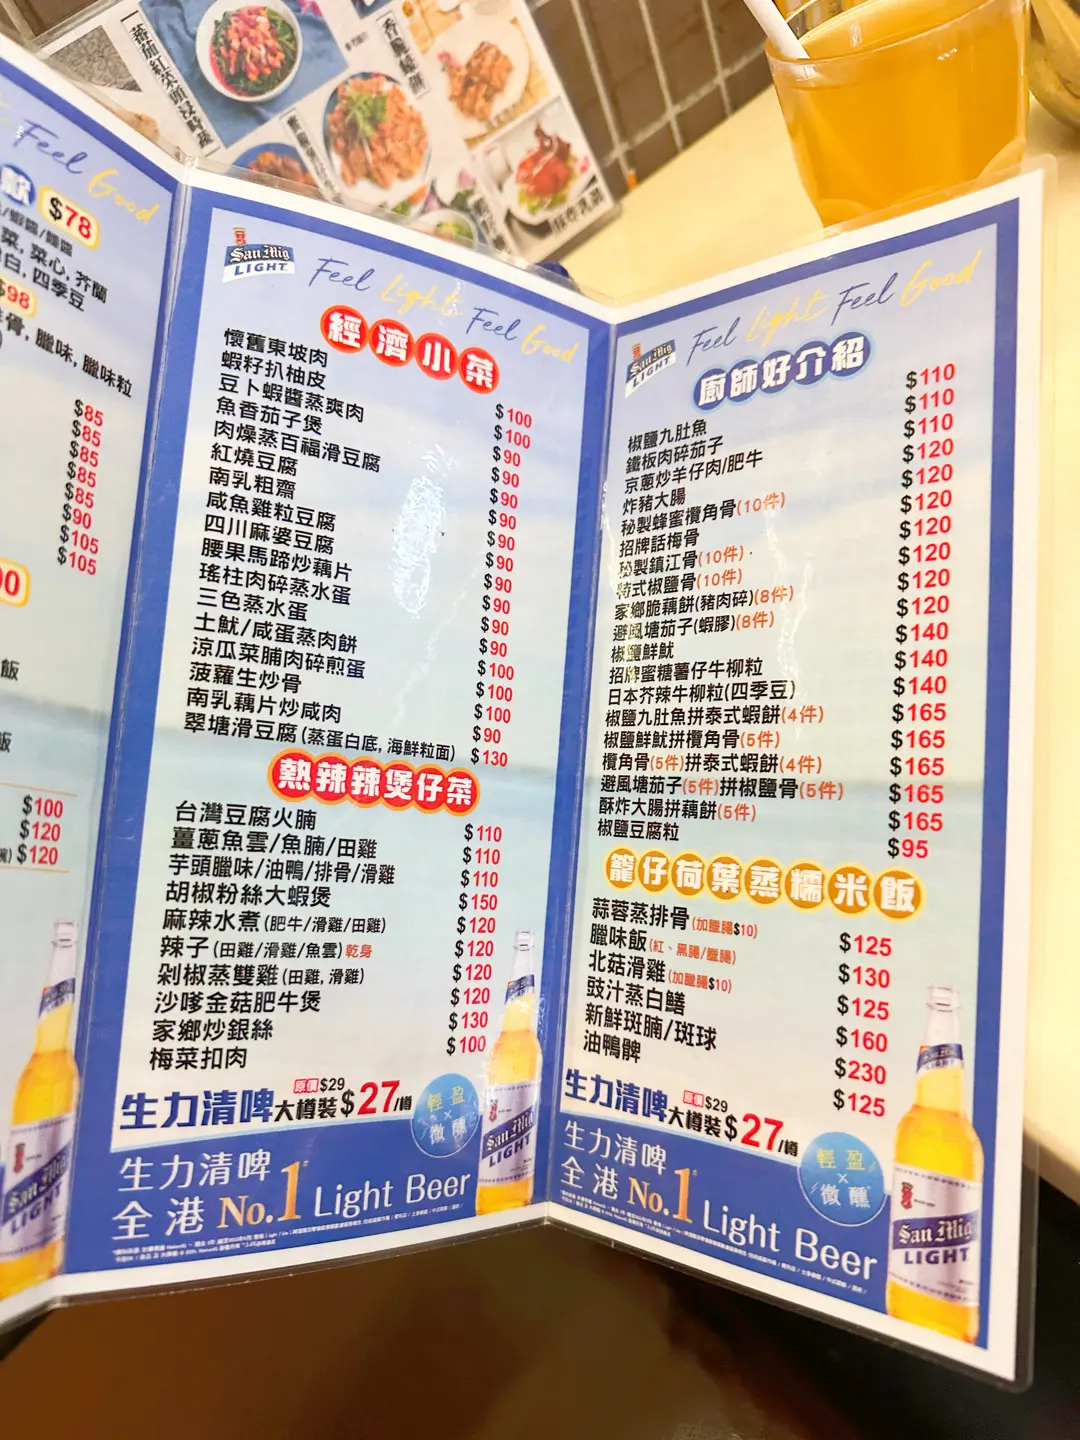 蕃茄紅菜頭浸時蔬
香脆燒餅
Feel Good
款 $78
/蝦醬/麵醬
菜, 菜心, 芥蘭
白, 四季豆
$98
骨, 臘味, 臘味粒
$85
$85
$85
$85
$85
$90
$105
$105
00
飯
飯
$100
$120
$120
San Mig
LIGHT
Feel Light Feel Good
經濟小菜
懷舊東坡肉 $100
蝦籽扒柚皮 $100
豆卜蝦醬蒸爽肉 $90
魚香茄子煲 $90
肉燥蒸百福滑豆腐 $90
紅燒豆腐 $90
南乳粗齋 $90
咸魚雞粒豆腐 $90
四川麻婆豆腐 $90
腰果馬蹄炒藕片 $90
瑤柱肉碎蒸水蛋 $90
三色蒸水蛋 $90
土魷/咸蛋蒸肉餅 $100
涼瓜菜脯肉碎煎蛋 $100
菠蘿生炒骨 $100
南乳藕片炒咸肉 $90
翠塘滑豆腐(蒸蛋白底, 海鮮粒面) $130
熱辣辣煲仔菜
台灣豆腐火腩 $110
薑蔥魚雲/魚腩/田雞 $110
芋頭臘味/油鴨/排骨/滑雞 $110
胡椒粉絲大蝦煲 $150
麻辣水煮(肥牛/滑雞/田雞) $120
辣子(田雞/滑雞/魚雲)乾身 $120
剁椒蒸雙雞(田雞, 滑雞) $120
沙嗲金菇肥牛煲 $120
家鄉炒銀絲 $130
梅菜扣肉 $100
生力清啤 大樽裝 原價$29 $27/樽
輕盈×微醺
生力清啤
全港No.1 Light Beer
San Mig
LIGHT
San Mig
LIGHT
Feel Light Feel Good
廚師好介紹
椒鹽九肚魚 $110
鐵板肉碎茄子 $110
京蔥炒羊仔肉/肥牛 $110
炸豬大腸 $120
秘製蜂蜜欖角骨(10件) $120
招牌話梅骨 $120
秘製鎮江骨(10件) $120
特式椒鹽骨(10件) $120
家鄉脆藕餅(豬肉碎)(8件) $120
避風塘茄子(蝦膠)(8件) $120
椒鹽鮮魷 $140
招牌蜜糖薯仔牛柳粒 $140
日本芥辣牛柳粒(四季豆) $140
椒鹽九肚魚拼泰式蝦餅(4件) $165
椒鹽鮮魷拼欖角骨(5件) $165
欖角骨(5件)拼泰式蝦餅(4件) $165
避風塘茄子(5件)拼椒鹽骨(5件) $165
酥炸大腸拼藕餅(5件) $165
椒鹽豆腐粒 $95
籠仔荷葉蒸糯米飯
蒜蓉蒸排骨(加臘腸$10) $125
臘味飯(紅、黑腸/臘腸) $130
北菇滑雞(加臘腸$10) $125
豉汁蒸白鱔 $160
新鮮斑腩/斑球 $230
油鴨髀 $125
生力清啤 大樽裝 原價$29 $27/樽
輕盈×微醺
生力清啤
全港No.1 Light Beer
San Mig
LIGHT